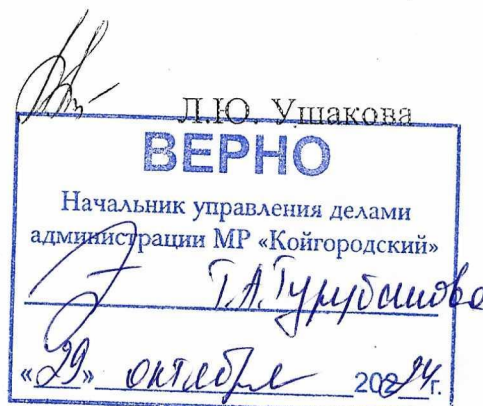 Л.Ю. Ушакова
ВЕРНО
Начальник управления делами
администрации МР «Койгородский»
Т.А. Турубанова
«29» октября 2024г.